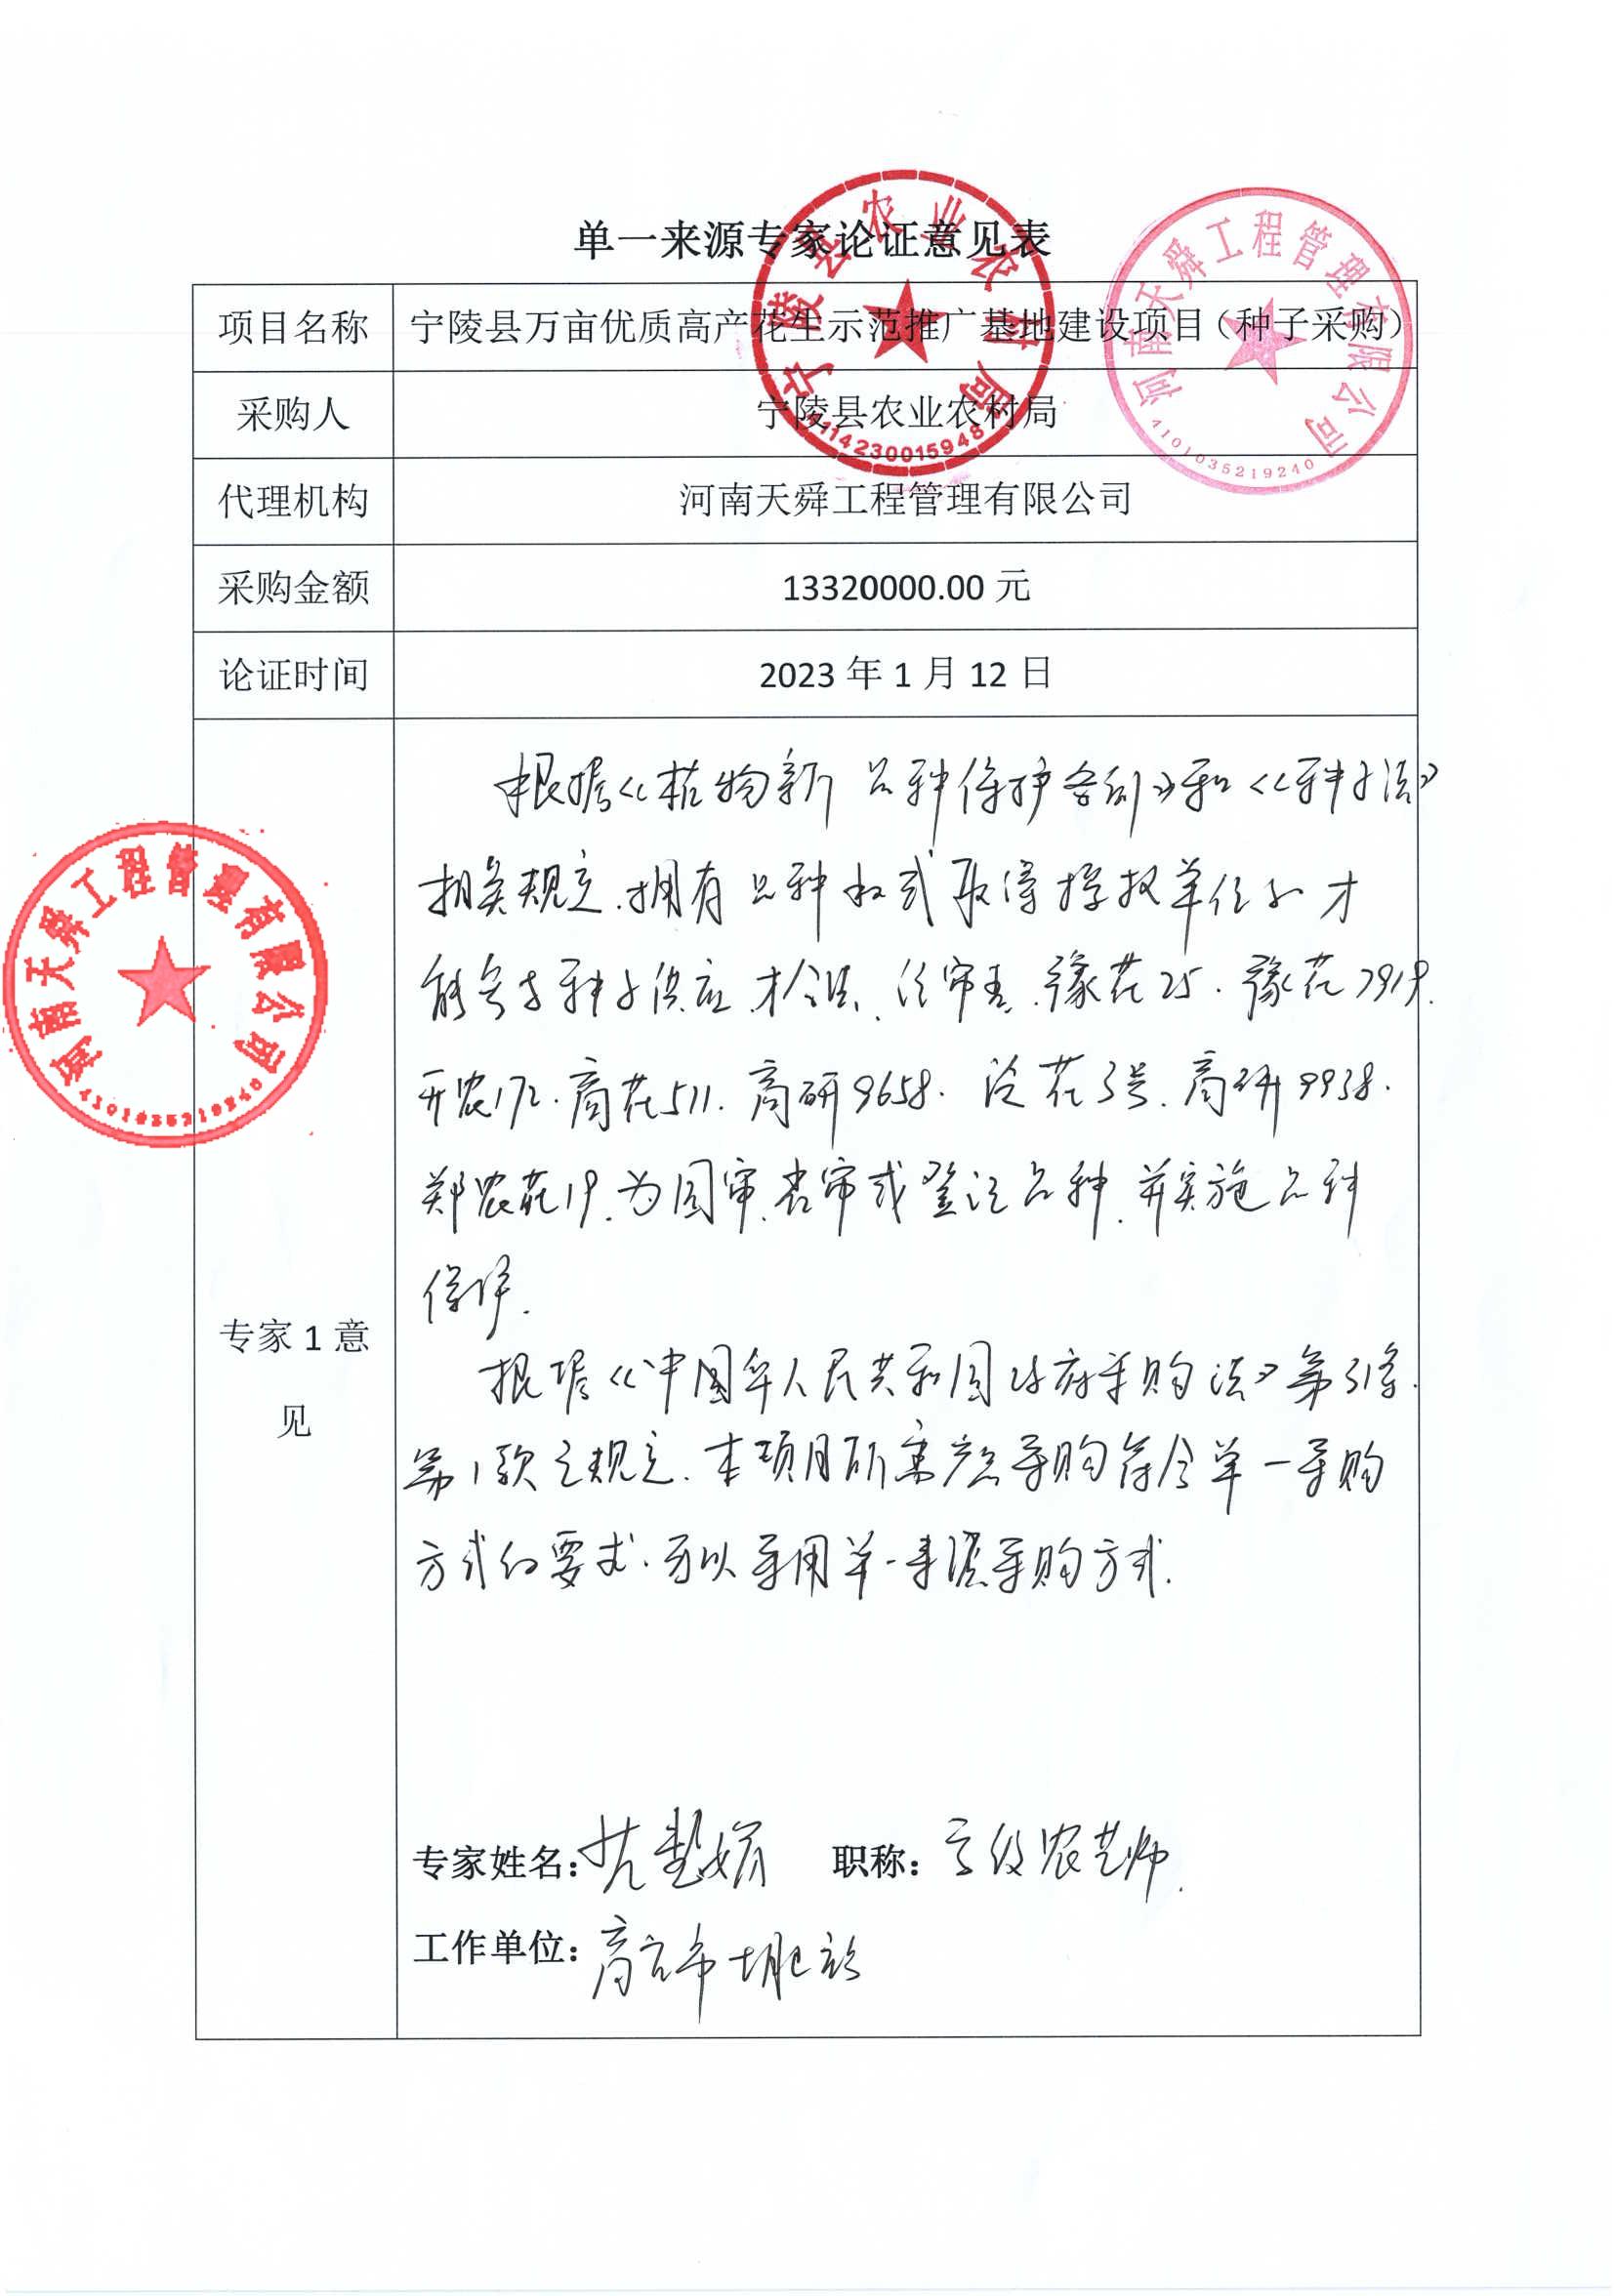 单一来源专家论证意见表
项目名称 宁陵县万亩优质高产花生示范推广基地建设项目（种子采购）
采购人 宁陵县农业农村局
代理机构 河南天舜工程管理有限公司
采购金额 13320000.00 元
论证时间 2023 年 1 月 12 日
专家 1 意见
根据《植物新品种保护条例》和《种子法》
相关规定,拥有品种权或取得授权单位
才能参与种子供应才合法、经审查,豫花25.豫花7919.
开农172.商花511.商研9658. 花3号.商研9938.
郑农花19.为国审、省审或登记品种,并实施品种
保护.
根据《中国华人民共和国政府采购法》第31条.
第1款之规定.本项目所需产品采购符合单一采购
方式的要求.可以采用单一来源采购方式.
专家姓名： 职称：高级农艺师.
工作单位：商丘市土肥站
宁陵县农业农村局
4114230015948
河南天舜工程管理有限公司
4101035219240
河南天舜工程管理有限公司
4101035219240